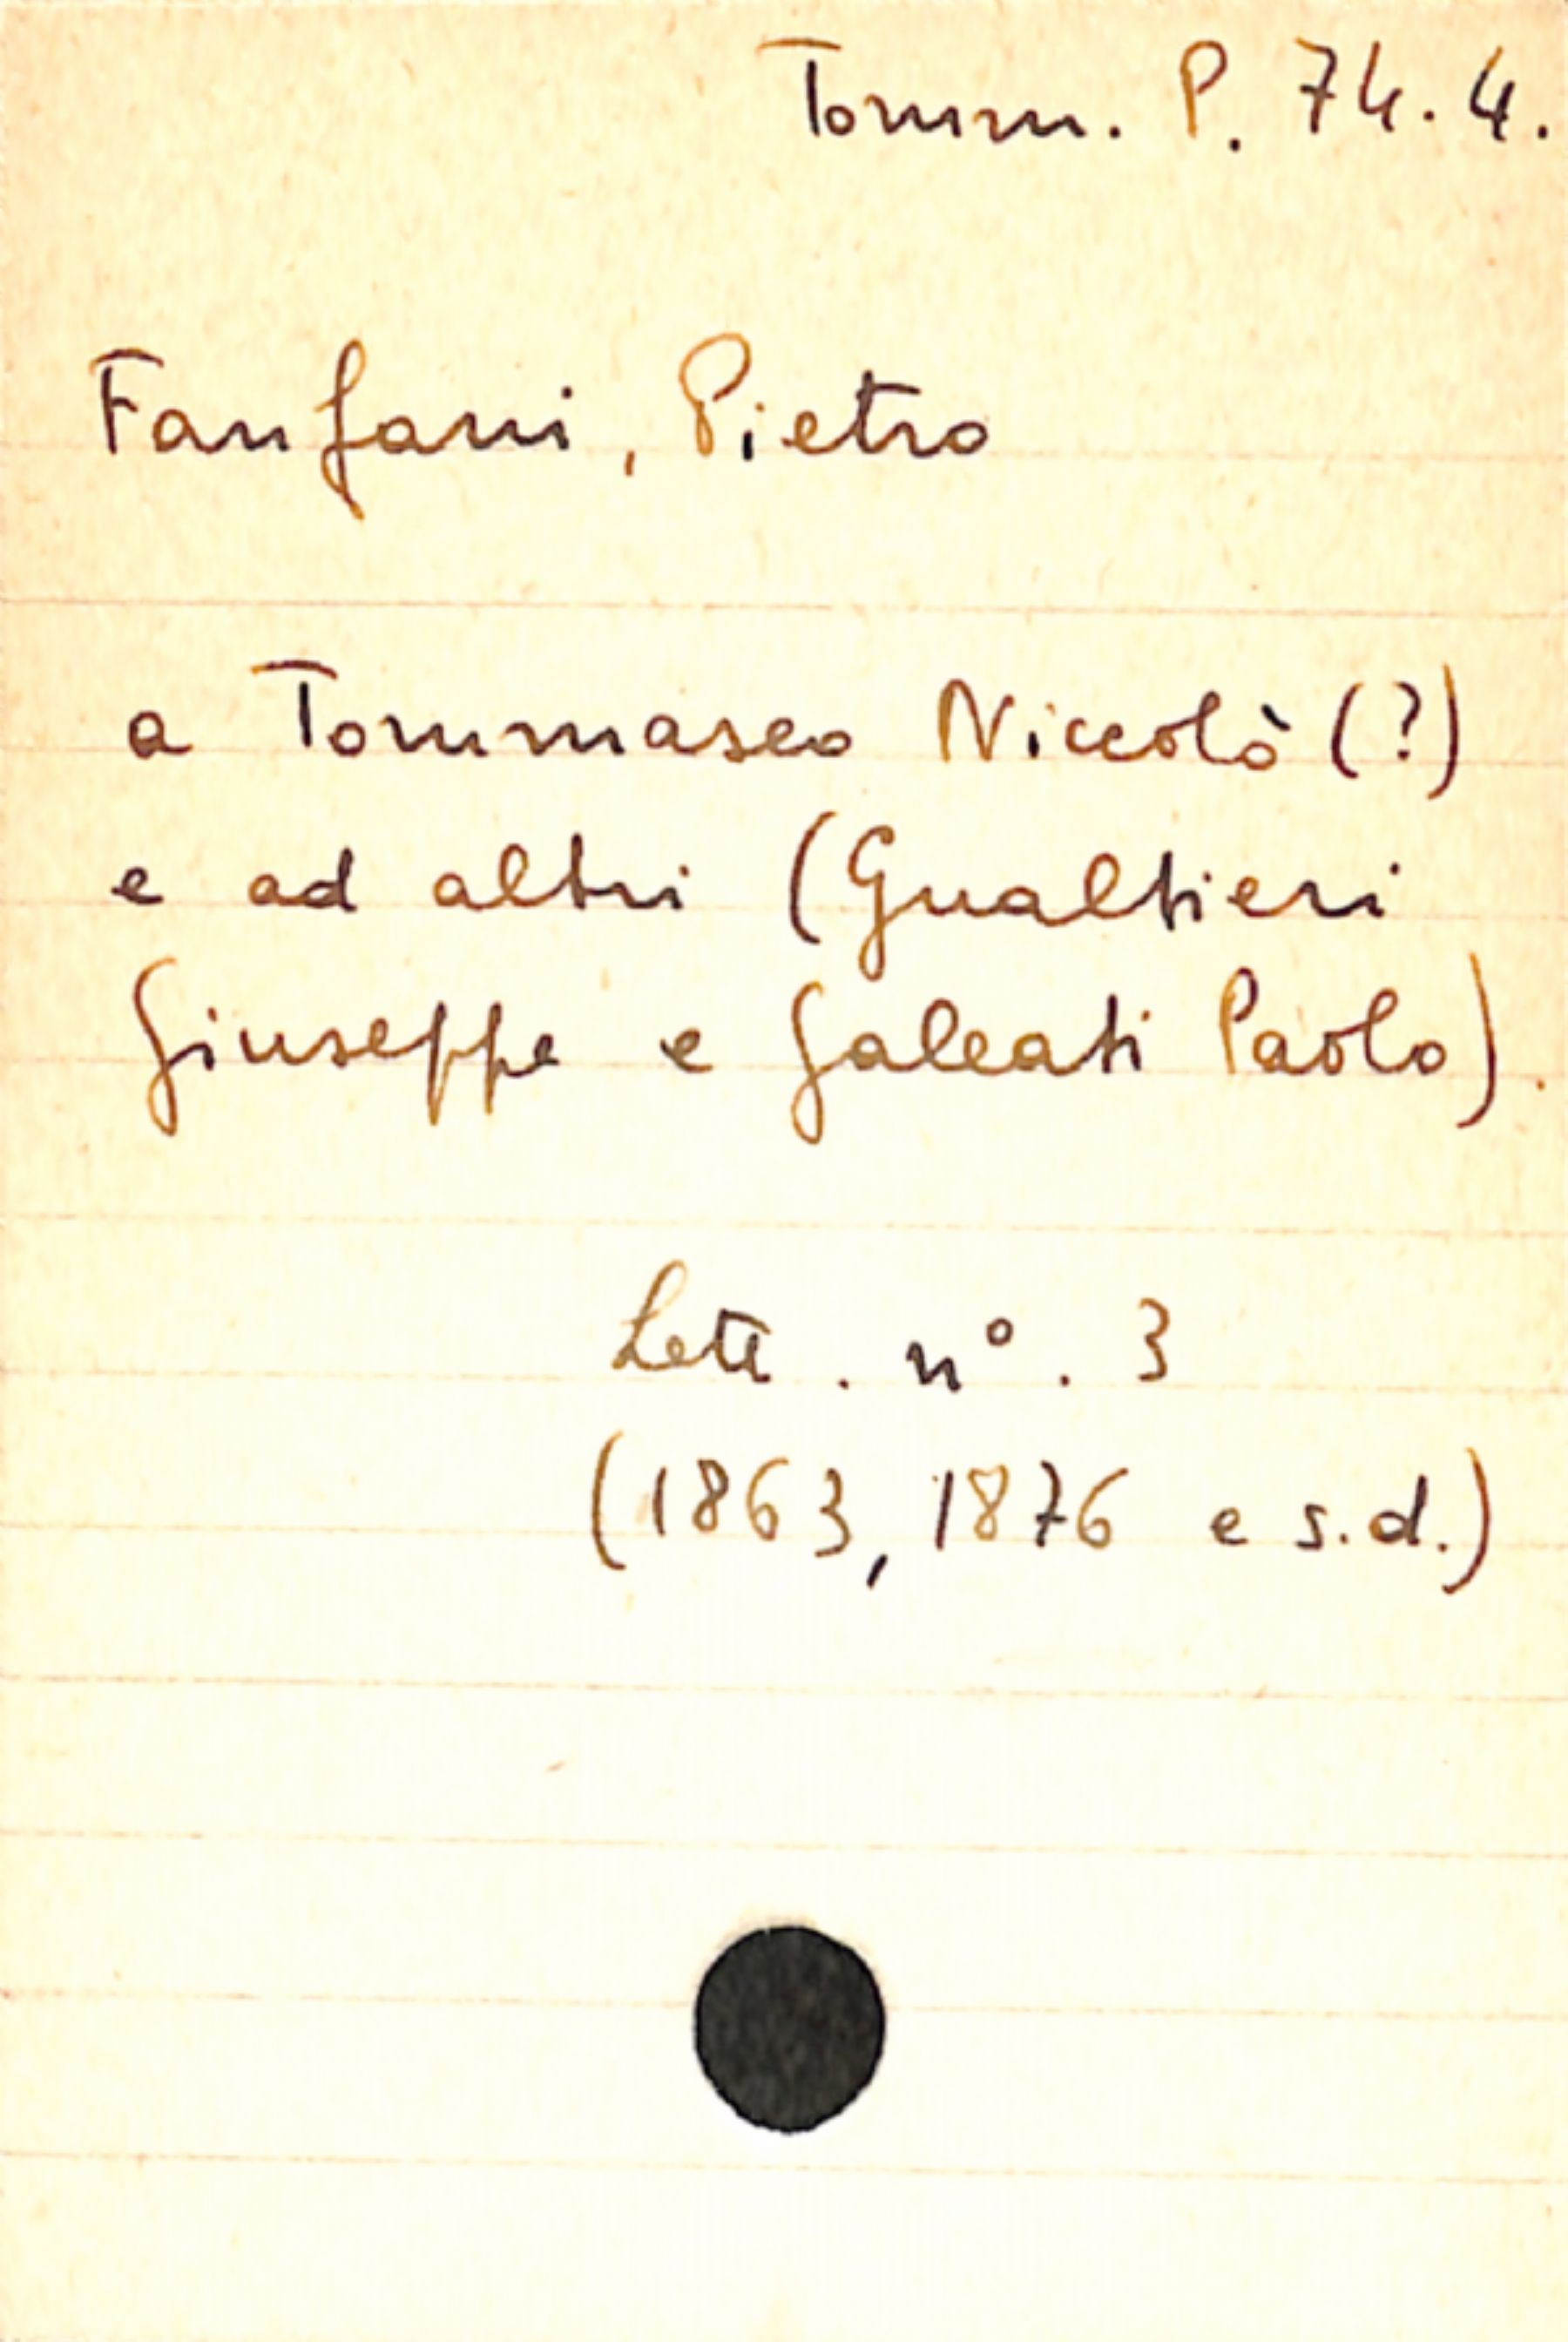 Tomm. P. 74.4.
Fanfani, Pietro
a Tommaseo Niccolò (?)
e ad altri (Gualtieri
Giuseppe e Galeati Paolo).
Lett. n°. 3
(1863, 1876 e s.d.)